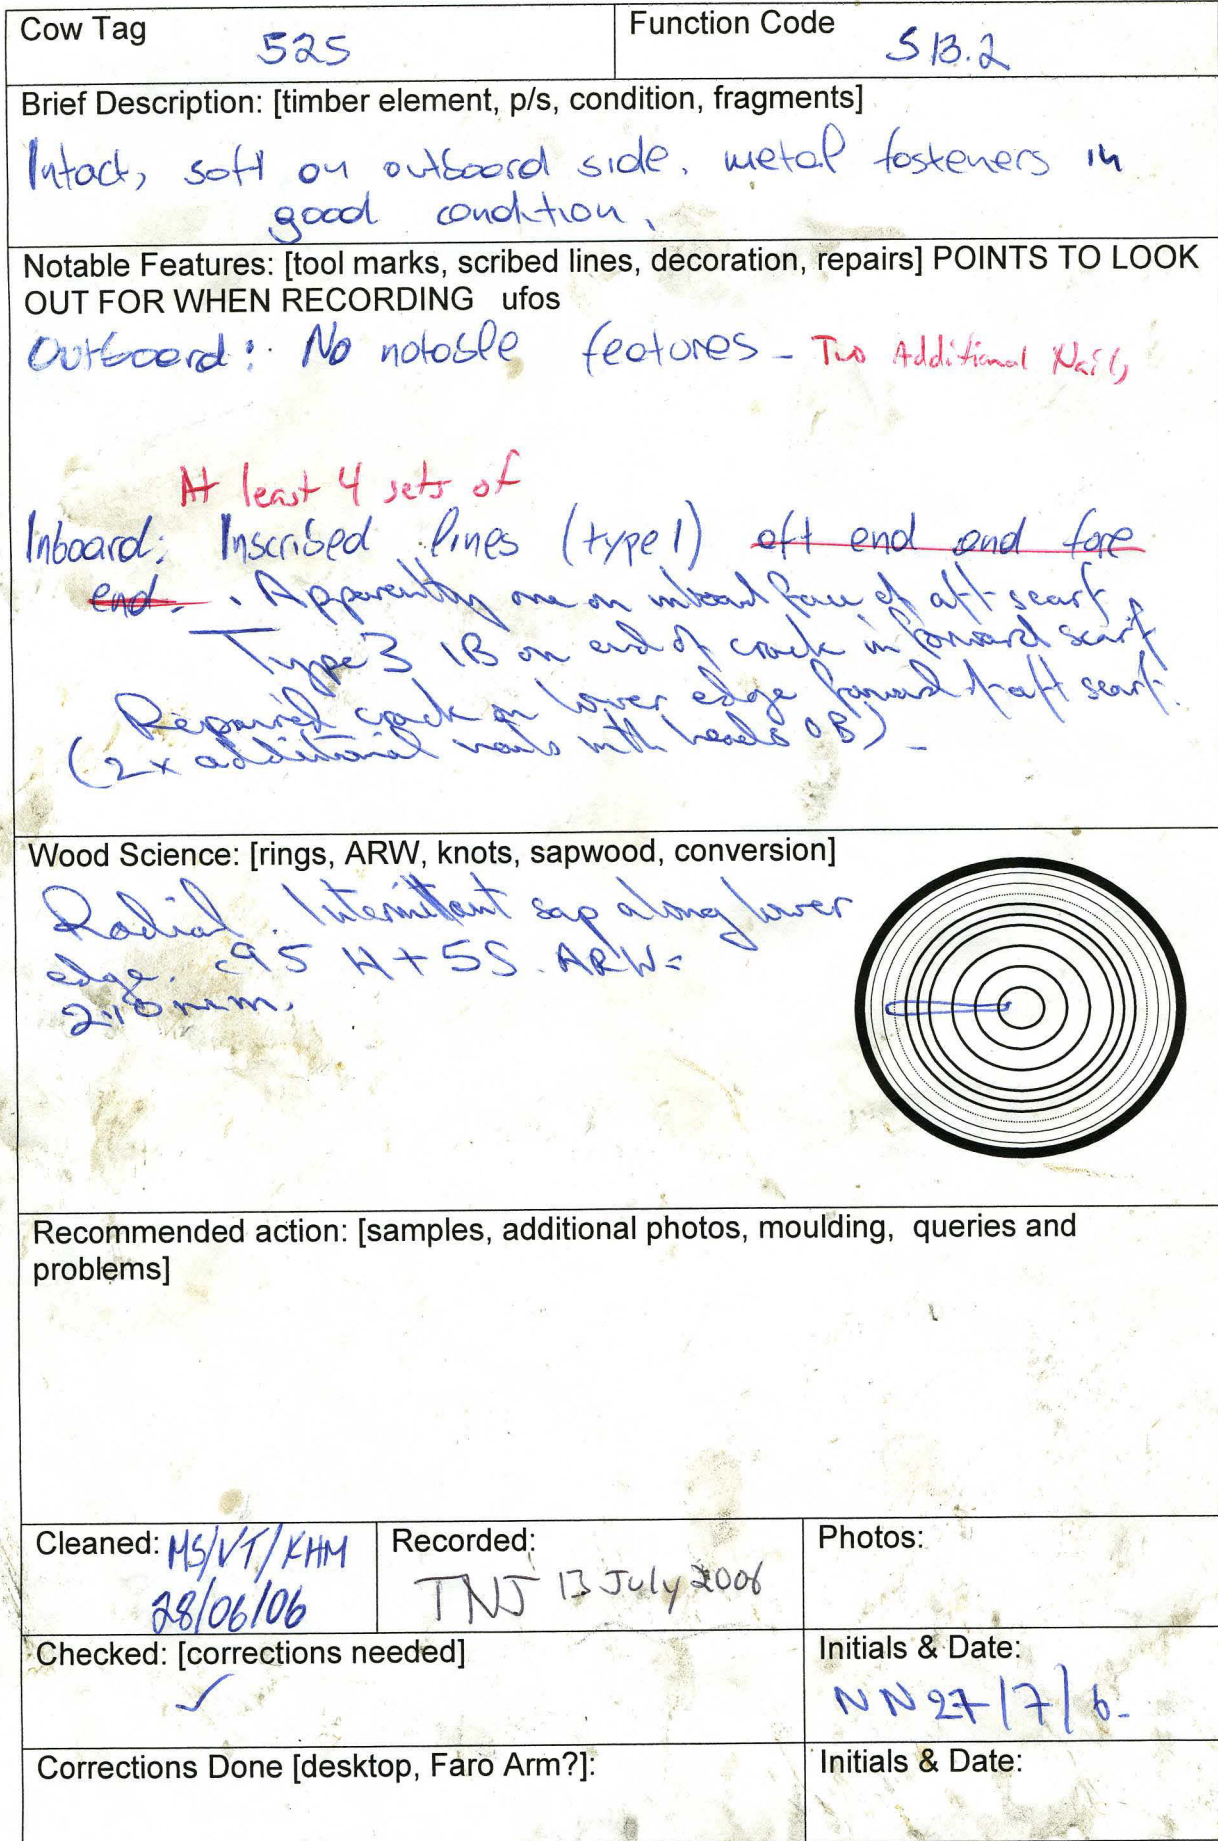 Cow Tag 525 Function Code SB.2
Brief Description: [timber element, p/s, condition, fragments]
Intact, soft on outboard side. metal fosteners in
good condition.
Notable Features: [tool marks, scribed lines, decoration, repairs] POINTS TO LOOK
OUT FOR WHEN RECORDING ufos
Outboard: No notable features - Two Additional Nails
At least 4 sets of
Inboard: Inscribed lines (type 1) aft end and fore
end. . Apparently one on inboard face of aft scarf,
Type 3 IB on end of crack in forward scarf
Repaired crack on lower edge forward of aft scarf.
(2x additional nails with heads OB)
Wood Science: [rings, ARW, knots, sapwood, conversion]
Radial. Intermittant sap along lower
edge. c95 H + 5S. ARW=
mm.
Recommended action: [samples, additional photos, moulding, queries and
problems]
Cleaned: MS/VT/KHM Recorded: Photos:
28/06/06 TNJ 13 July 2006
Checked: [corrections needed] Initials & Date:
✓ NN 27/7/6-
Corrections Done [desktop, Faro Arm?]: Initials & Date: